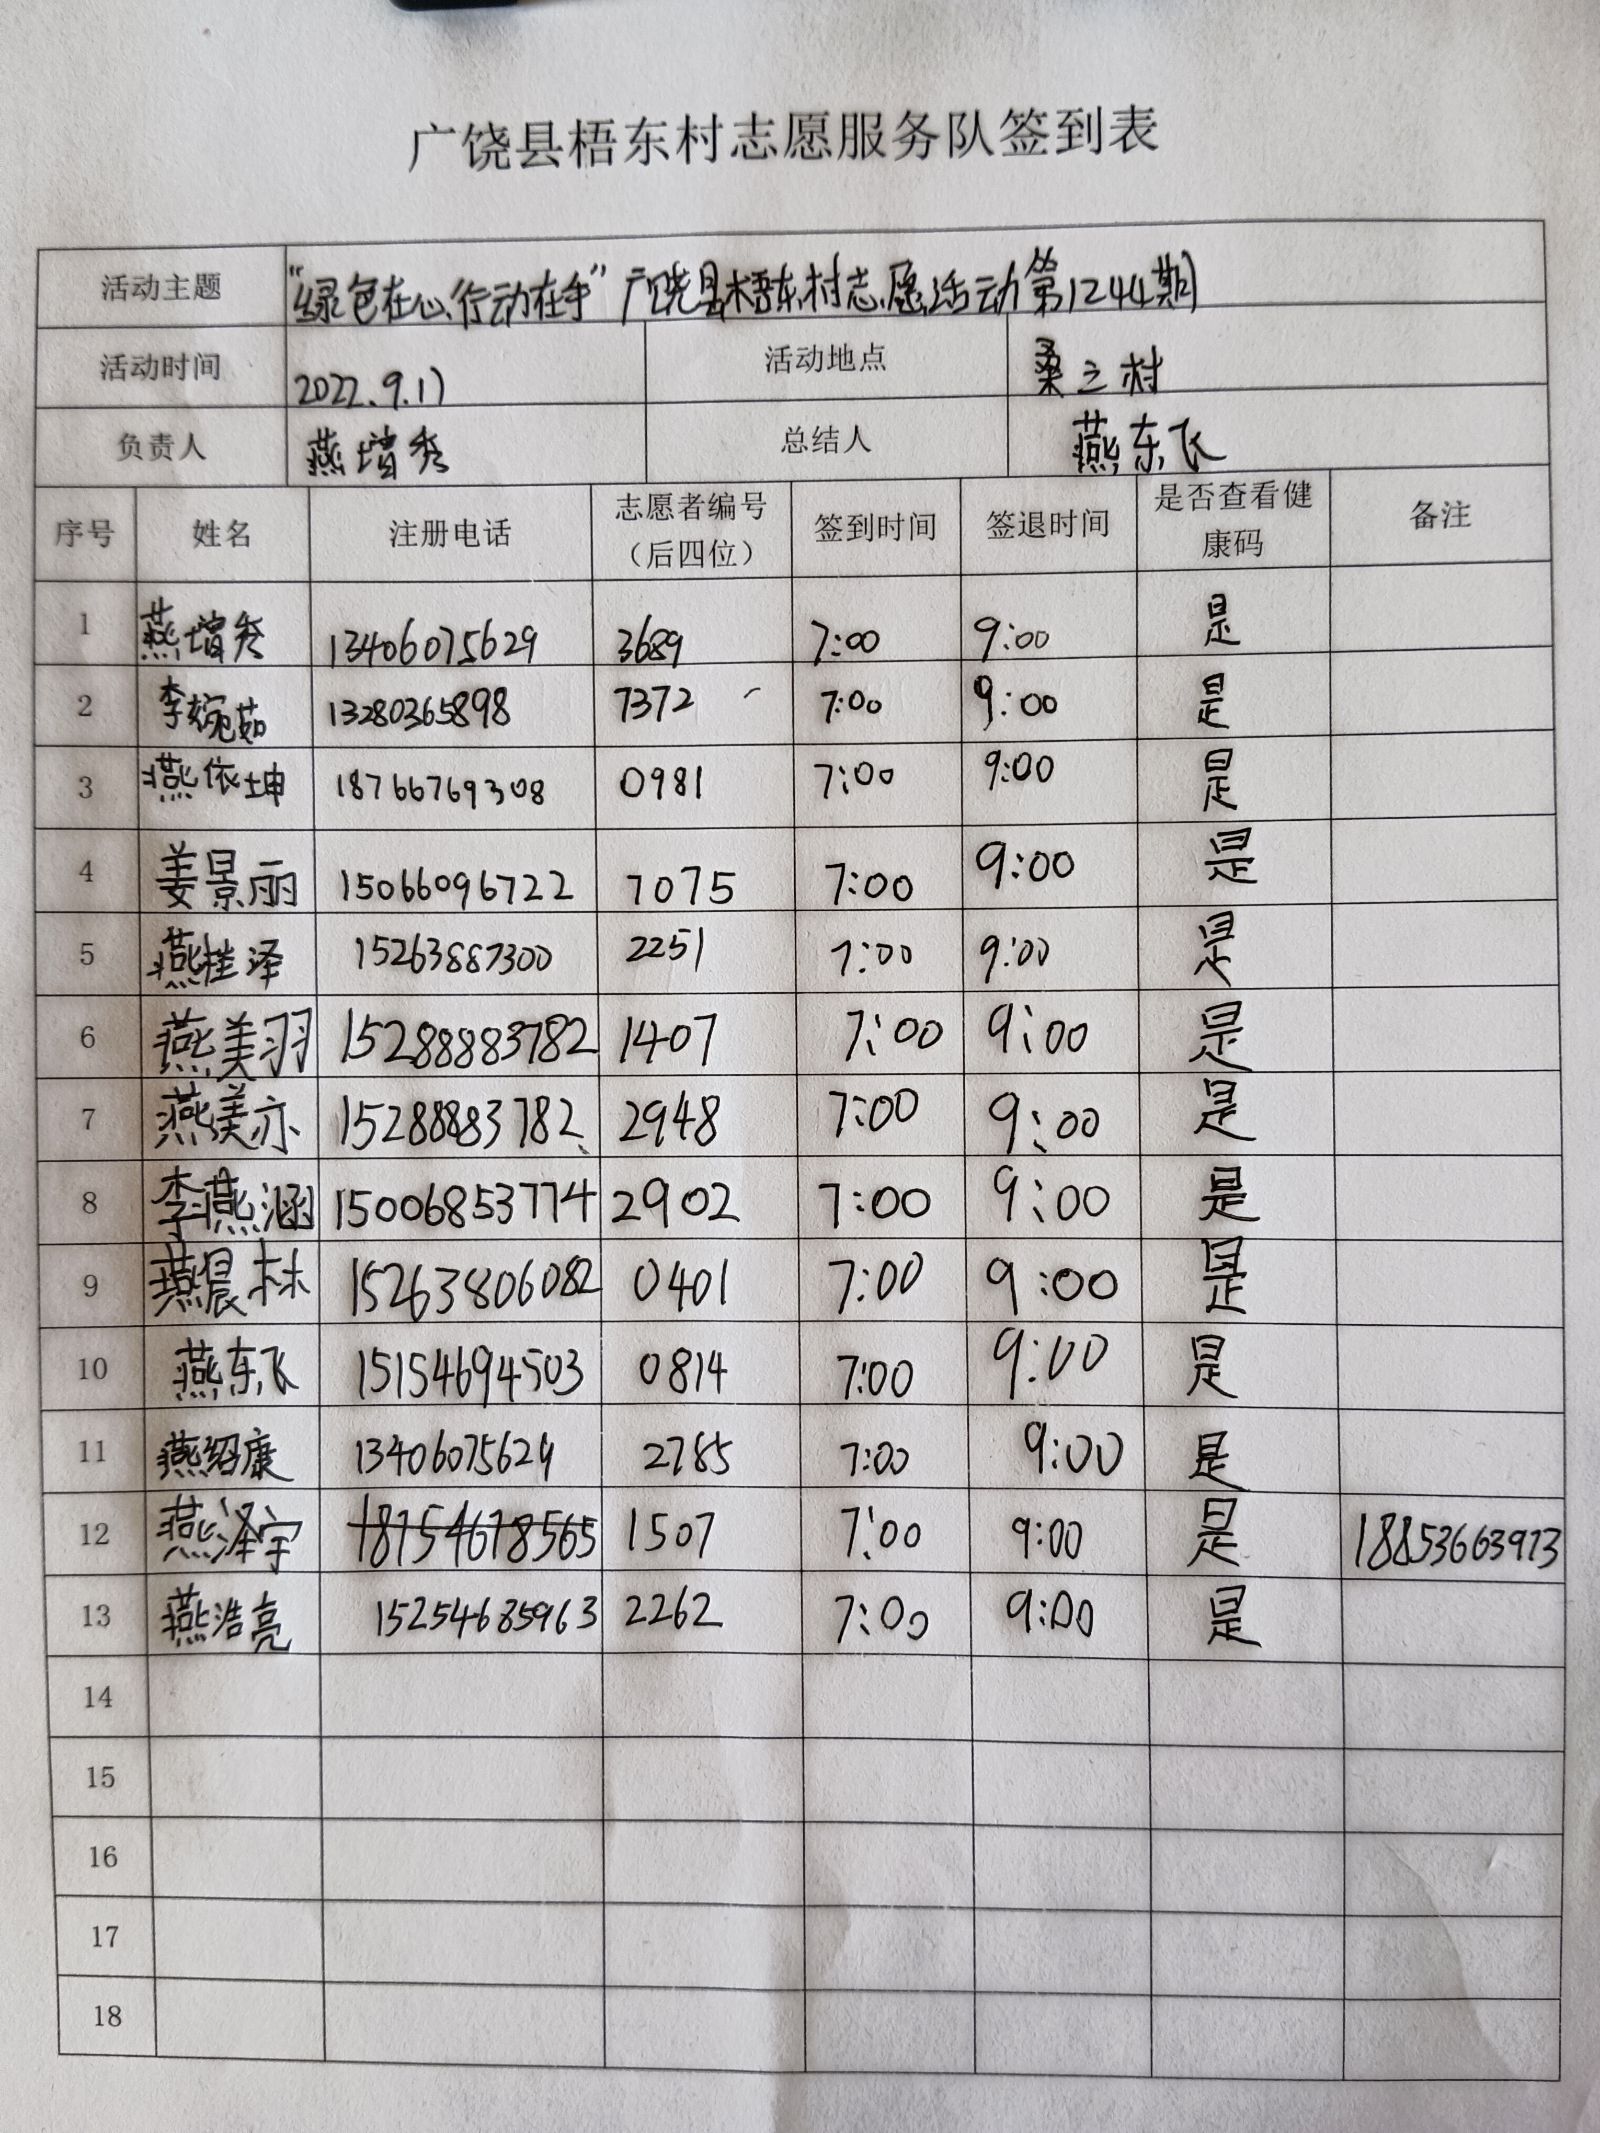 广饶县梧东村志愿服务队签到表
活动主题 “绿色在心,行动在手”广饶县梧东村志愿活动第1244期
活动时间 2022.9.17 活动地点 桑之村
负责人 燕增秀 总结人 燕东飞
序号 姓名 注册电话 志愿者编号（后四位） 签到时间 签退时间 是否查看健康码 备注
1 燕增秀 13406075629 3689 7:00 9:00 是
2 李婉茹 13280365898 7372 7:00 9:00 是
3 燕依坤 18766769308 0981 7:00 9:00 是
4 姜景丽 15066096722 7075 7:00 9:00 是
5 燕桂泽 15263887300 2251 7:00 9:00 是
6 燕美羽 15288883782 1407 7:00 9:00 是
7 燕美亦 15288883782 2948 7:00 9:00 是
8 李燕涵 15006853774 2902 7:00 9:00 是
9 燕晨林 15263806082 0401 7:00 9:00 是
10 燕东飞 15154694503 0814 7:00 9:00 是
11 燕绍康 13406075629 2785 7:00 9:00 是
12 燕泽宇 18754678565 1507 7:00 9:00 是 18853663973
13 燕浩亮 15254685963 2262 7:00 9:00 是
14
15
16
17
18